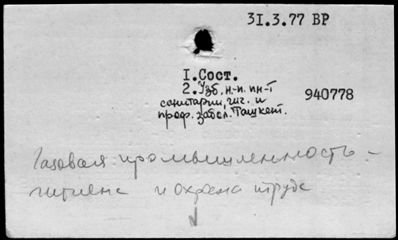 31.3.77 ВР
I.Сост.
2. Узб. н-и. ин-т
санитарии, гиг. и
проф. забол. Ташкент.
940778
Газовая промышленность -
гигиена и охрана труда